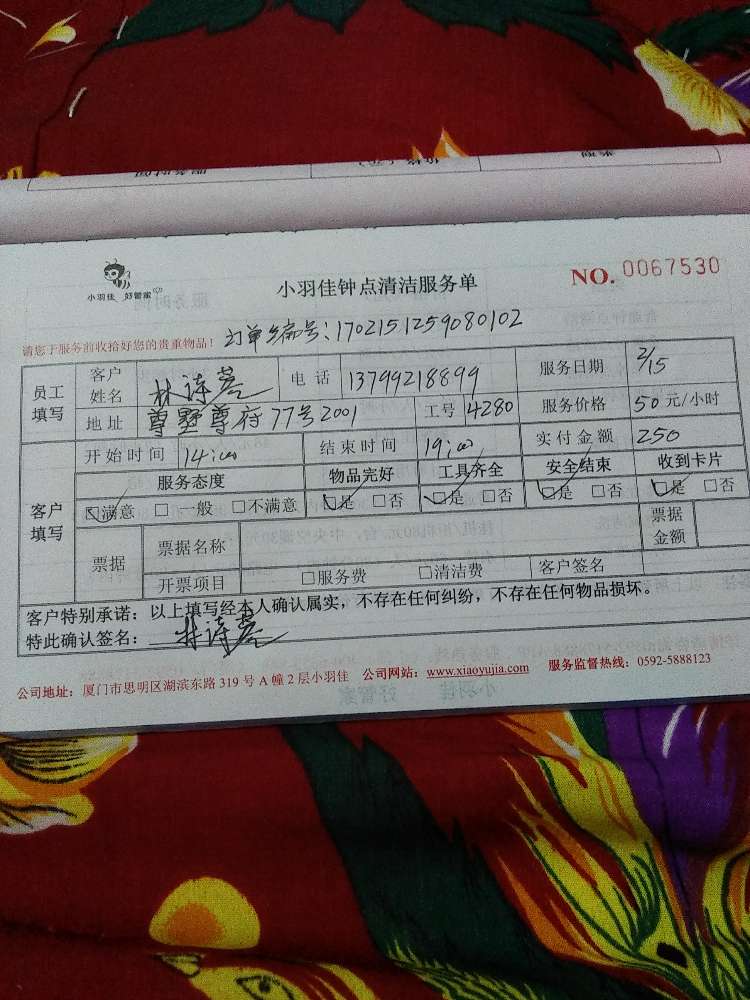 小羽佳 好管家
小羽佳钟点清洁服务单
NO. 0067530
请您于服务前收拾好您的贵重物品！
订单编号：1702151259080102
员工填写 客户姓名 林诗 电话 13799218899 服务日期 2/15
地址 尊墅尊府77号2001 工号 4280 服务价格 50元/小时
开始时间 14:00 结束时间 19:00 实付金额 250
客户填写 服务态度 物品完好 工具齐全 安全结束 收到卡片
☑满意 □一般 □不满意 ☑是 □否 ☑是 □否 ☑是 □否 ☑是 □否
票据 票据名称 票据金额
开票项目 □服务费 □清洁费 客户签名
客户特别承诺：以上填写经本人确认属实，不存在任何纠纷，不存在任何物品损坏。
特此确认签名：林诗
公司地址：厦门市思明区湖滨东路319号A幢2层小羽佳 公司网站：www.xiaoyujia.com 服务监督热线：0592-5888123